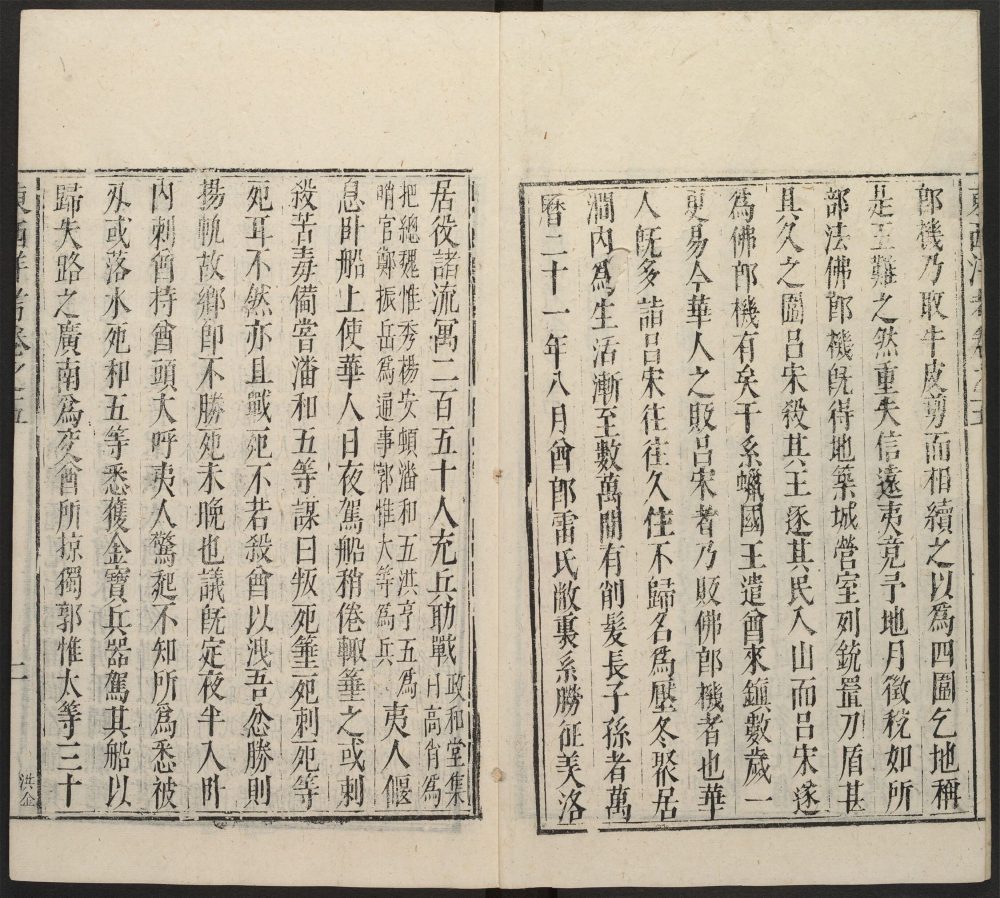 東西洋考卷之五
郎機乃取牛皮剪而相續之以爲四圍乞地稱
是王難之然重失信遠夷竟予地月徵稅如所
部法佛郎機既得地築城營室列銃置刀盾甚
具久之圍呂宋殺其王逐其民入山而呂宋遂
爲佛郎機有矣干系蠟國王遣酋來鎮數歲一
更易今華人之販呂宋者乃販佛郎機者也華
人既多詣呂宋往往久住不歸名爲壓冬聚居
澗內爲生活漸至數萬間有削髮長子孫者萬
曆二十一年八月酋郎雷氏敝裏系勝征美洛
居役諸流寓二百五十人充兵助戰
政和堂集
曰高肖爲
把總魏惟秀楊安頓潘和五洪亨五爲
哨官鄭振岳爲通事郭惟太等爲兵
夷人偃
息卧船上使華人日夜駕船稍倦輙箠之或刺
殺苦毒備嘗潘和五等謀曰叛死箠死刺死等
死耳不然亦且戰死不若殺酋以洩吾忿勝則
揚帆故鄉即不勝死未晚也議既定夜半入卧
內刺酋持酋頭大呼夷人驚起不知所爲悉被
刃或落水死和五等悉獲金寶兵器駕其船以
歸失路之廣南爲交酋所掠獨郭惟太等三十
東西洋考卷之五
二
洪企